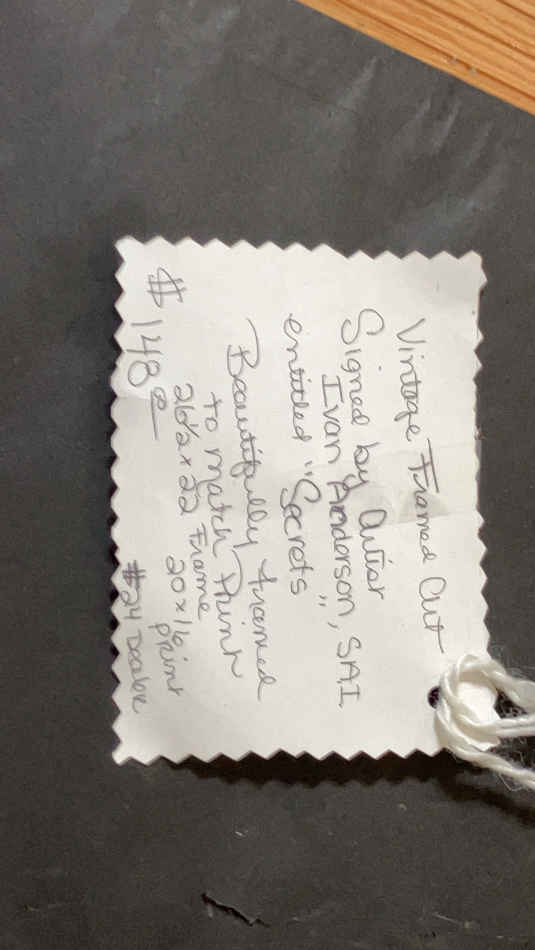 Vintage Framed Art
Signed by Artist
Ivan Anderson, SAI
entitled "Secrets"
Beautifully framed
to match Print
26½ x 22 Frame
20 x 16 print
$148.00
#24 Dealer